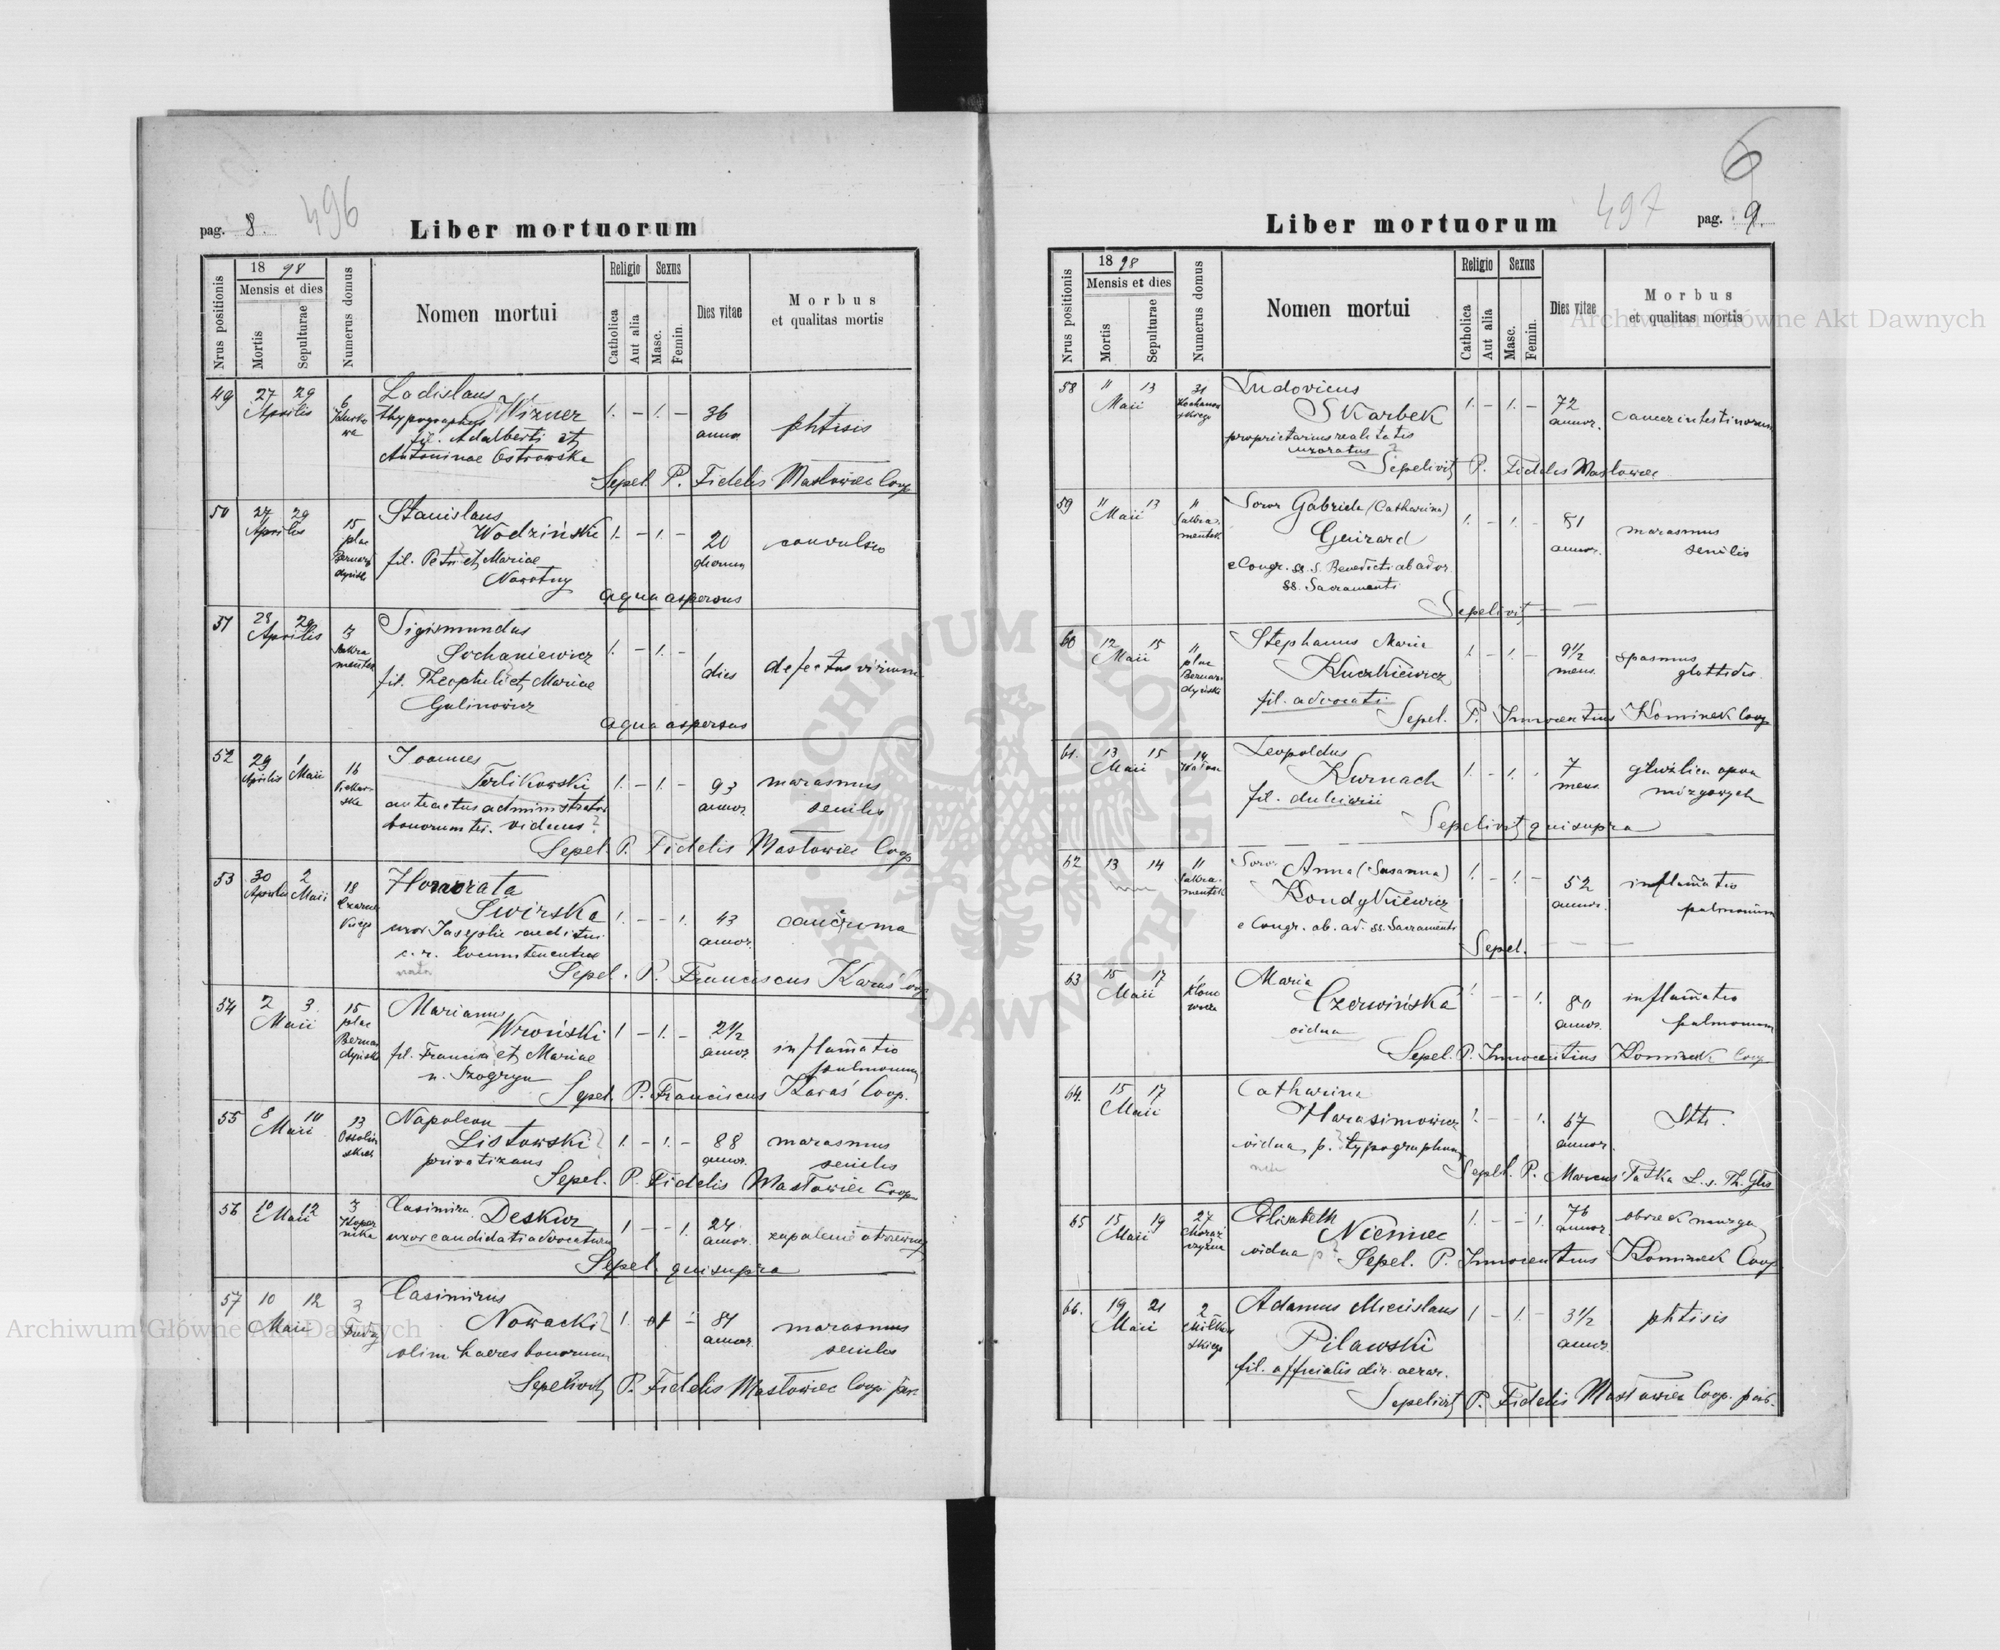 pag. 8.
496
Liber mortuorum
Nrus positionis
18 98
Mensis et dies
Mortis
Sepulturae
Numerus domus
Nomen mortui
Religio
Catholica
Aut alia
Sexus
Masc.
Femin.
Dies vitae
Morbus
et qualitas mortis
49 27 29 6 Ladislaus
Aprilis Wizner 1. - 1. - 36 phtisis
thypographus annor.
fil. Adalberti et
Antoninae Ostrowska
Sepel. P. Fidelis Masłowiec Coop
50 27 29 15 Stanislaus
Aprilis plac Wodziński 1. - 1. - 20 convulsio
Bernar
dyński fil. Petri et Mariae dierum
Nowotny
aqua aspersus
51 28 29 3 Sigismundus
Aprilis Sakra Sochaniewicz 1. - 1. - 1 defectus virium
mentek fil. Theophili et Mariae dies
Galinowicz
aqua aspersus
52 29 1 16 Joannes
Aprilis Maii Terlikowski 1. - 1. - 93 marasmus
Piekar-
ska anteactus administrator annor. senilis
bonorum ter. viduus?
Sepel. P. Fidelis Masłowiec Coop
53 30 2 18 Honorata
Aprilis Maii Czarnec
kiego Świrska 1. - - 1. 43 cancroma
uxor Josephi auditui annor.
c. r. locumtenentiae
nata Sepel. P. Franciscus Karaś Coop
54 2 3 15 Marianus
Maii plac Wroński 1 - 1. - 2 1/2 inflam̄atio
Bernar
dyński fil. Francisci et Mariae annor. pulmonum
n. Szogryn
Sepel. P. Franciscus Karaś Coop.
55 8 10 13 Napoleon
Maii Ossoliń
skich Listowski? 1. - 1. - 88 marasmus
privatizans annor. senilis
Sepel. P. Fidelis Masłowiec Coop
56 10 12 3 Casimira Deskur
Maii Koper
nika uxor candidati advocaturae 1 - - 1. 24 zapalenie otrzewnej
annor.
Sepel. qui supra
57 10 12 3 Casimirus
Maii Nowacki? 1. 84 marasmus
olim haeres bonorum annor. senilis
Sepelivit P. Fidelis Masłowiec Coop. par.
6
497
pag. 9.
Liber mortuorum
Nrus positionis
18 98
Mensis et dies
Mortis
Sepulturae
Numerus domus
Nomen mortui
Religio
Catholica
Aut alia
Sexus
Masc.
Femin.
Dies vitae
Morbus
et qualitas mortis
58 11 13 31 Ludovicus
Maii Kochanow
skiego Skarbek 1. - 1. - 72 cancer intestinorum
proprietarius realitatis annor.
uxoratus?
Sepelivit P. Fidelis Masłowiec
59 11 13 11 Soror Gabriela (Catharina)
Maii Sakra-
mentek Guirard 1. - 1. 81 marasmus
e Congr. SS. S. Benedicti ab ador. annor. senilis
SS. Sacramenti
Sepelivit — —
60 12 15 11 Stephanus Maria
Maii plac
Bernar-
dyński Kuczkiewicz 1. - 1. - 9 1/2 spasmus
fil. advocati mens. glottidis
Sepel. P. Innocentius Kominek Coop
61. 13 15 14 Leopoldus
Maii Kurnach 1. - 1. 7 gruźlica opon
fil. dulciarii mens. mózgowych
Sepelivit qui supra
62 13 14 11 Soror Anna (Susanna)
Sakra-
mentek Kondykiewicz 1. - 1. - 52 inflam̄atio
e Congr. ab. ad. SS. Sacramenti annor. pulmonum
Sepel. — — —
63 15 17 1 Maria
Maii Klono
wicza Czerwińska 1. - - 1. 80 inflam̄atio
vidua annor. pulmonum
Sepel. P. Innocentius Kominek Coop
64. 15 17 Catharina
Maii Harasimowicz 1. - - 1. 67
vidua p. typographum annor.
Sepel. P. Marcus Tatka
65 15 19 27 Elisabeth
Maii Chorąż
czyzna Niemiec 1. - - 1. 76 obrzęk mózgu
vidua p? annor.
Sepel. P. Innocentius Kominek Coop
66. 19 21 2 Adamus Miecislaus
Maii Miłkow
skiego Pilawski 1 - 1. - 3 1/2 phtisis
fil. officialis dir. aerar. annor.
Sepelivit P. Fidelis Masłowiec Coop. par.
Archiwum Główne Akt Dawnych
Archiwum Główne Akt Dawnych
ARCHIWUM GŁÓWNE AKT DAWNYCH